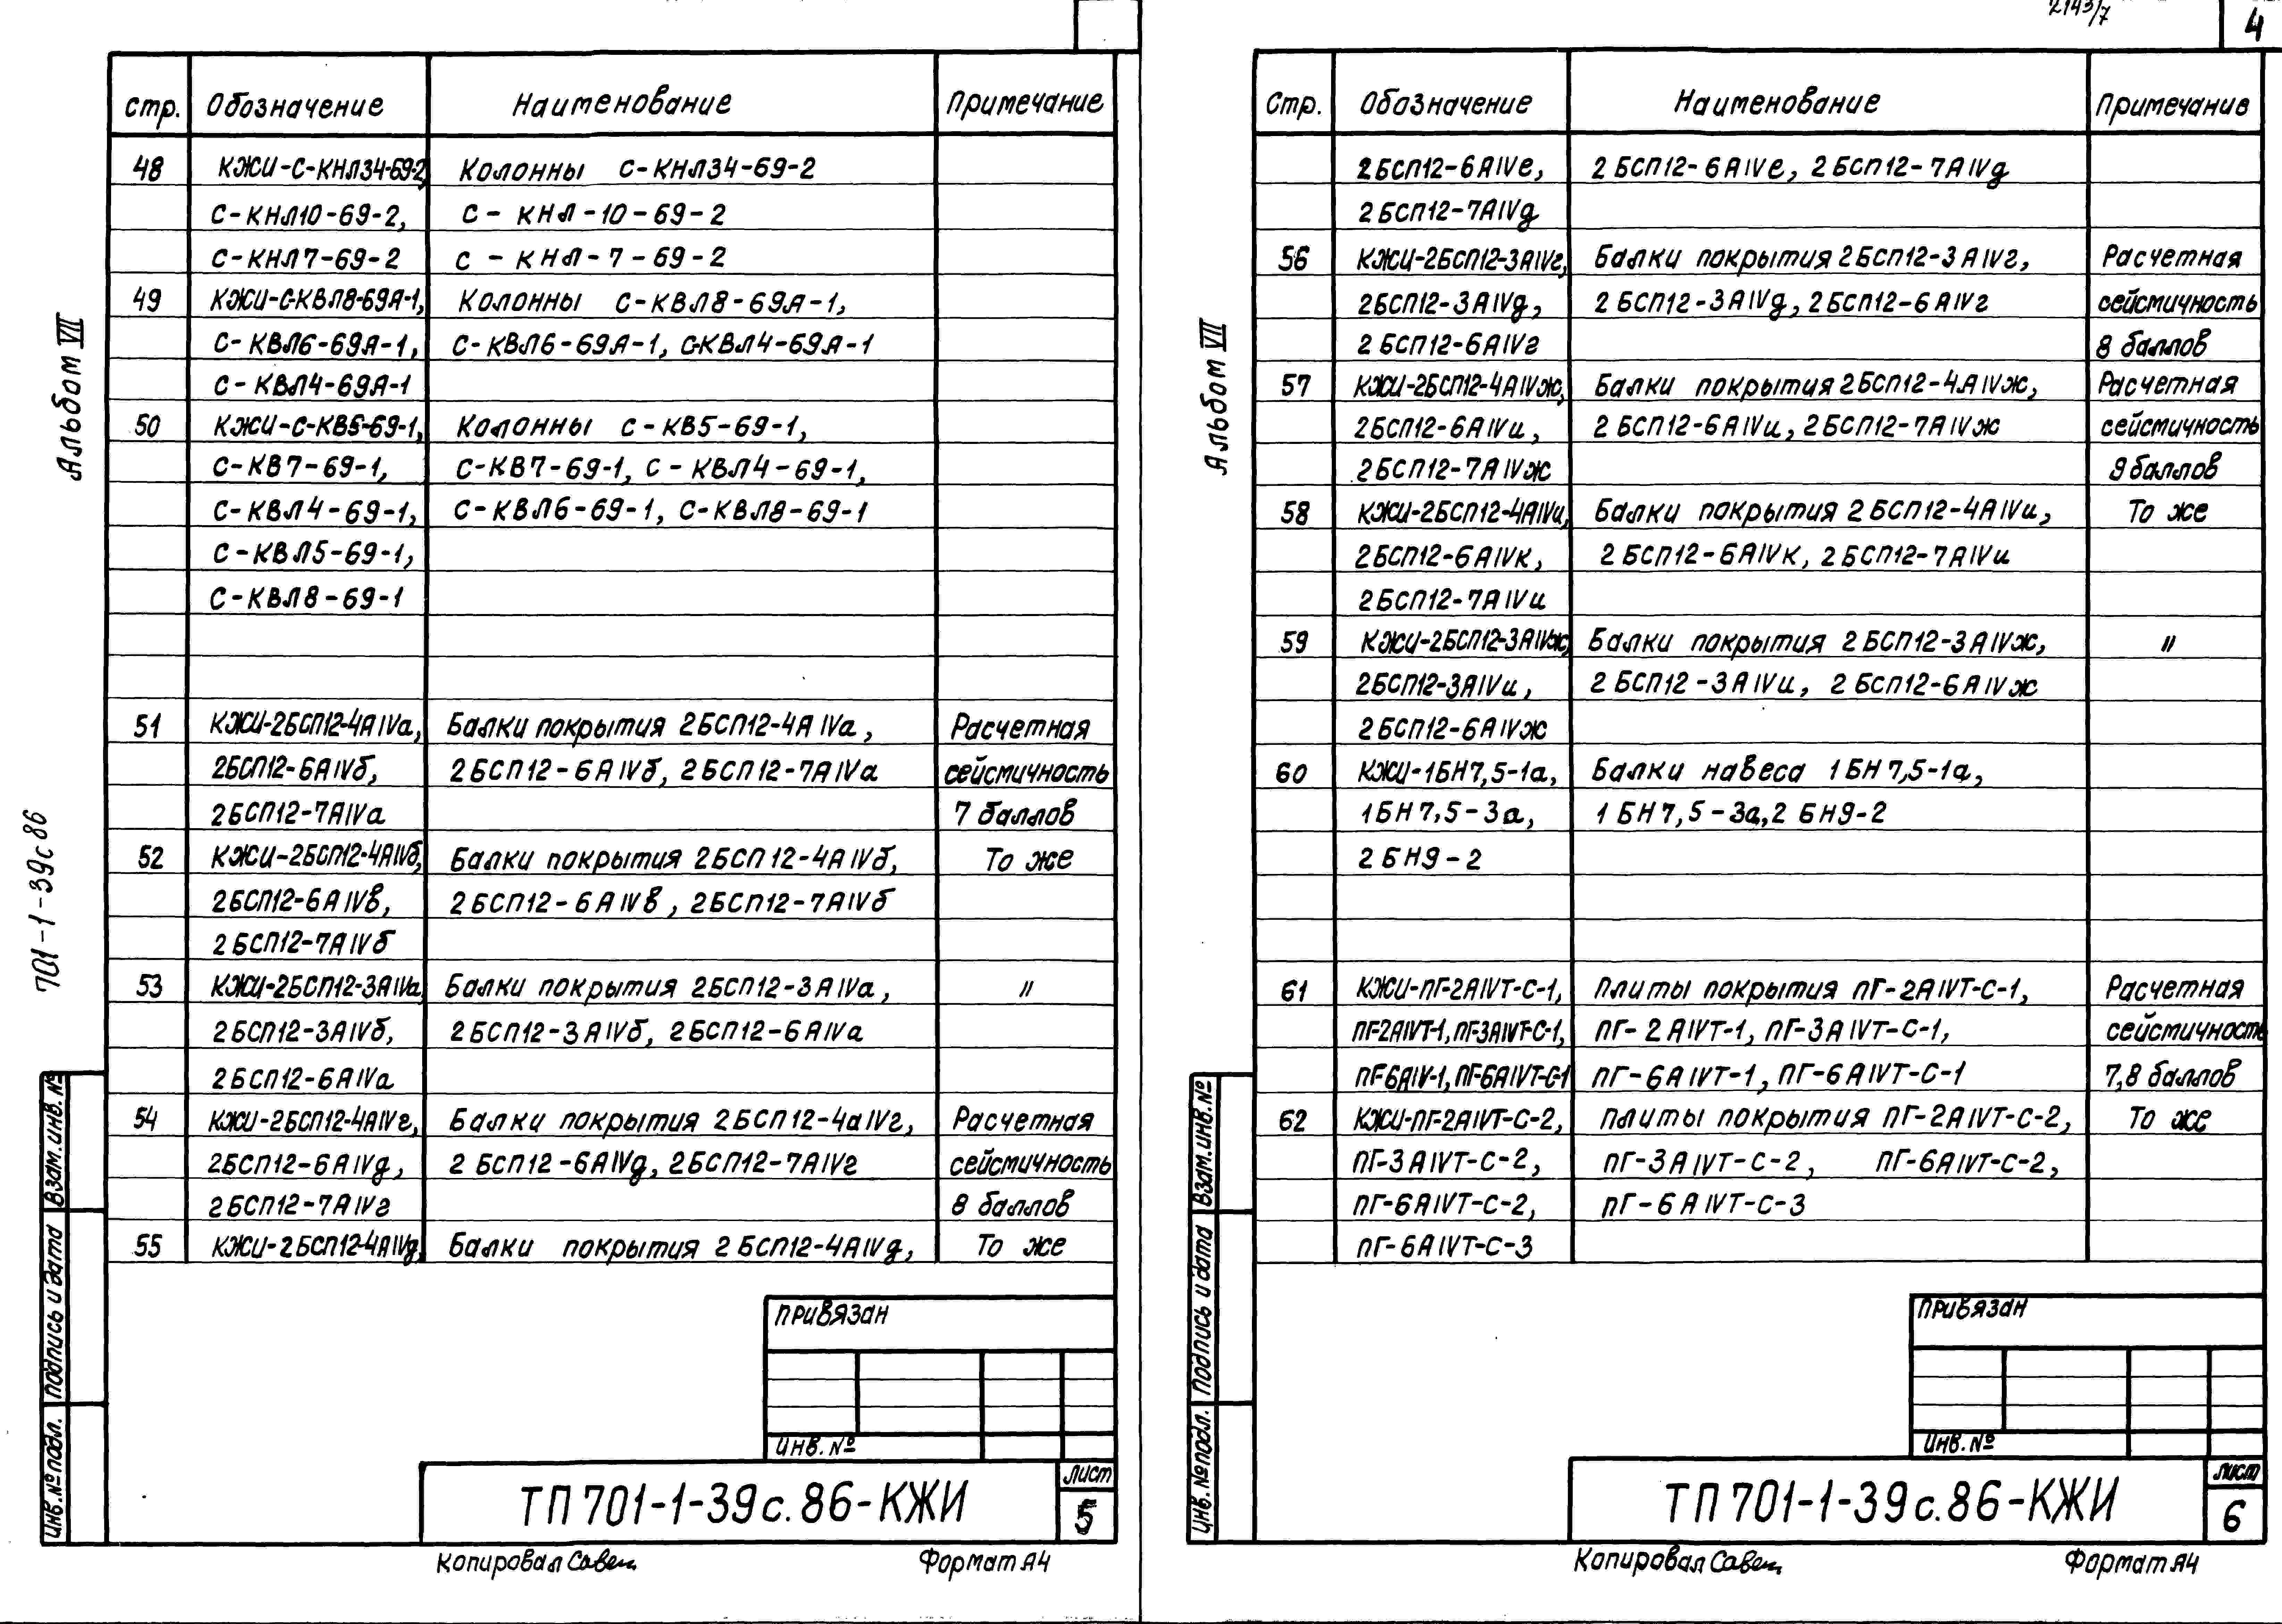 2143/7
4
Альбом VII
701-1-39с86
Стр. Обозначение Наименование Примечание
48 КЖИ-С-КНЛ34-69-2, Колонны С-КНЛ34-69-2
С-КНЛ10-69-2, С-КНЛ-10-69-2
С-КНЛ7-69-2 С-КНЛ-7-69-2
49 КЖИ-С-КВЛ8-69А-1, Колонны С-КВЛ8-69А-1,
С-КВЛ6-69А-1, С-КВЛ6-69А-1, С-КВЛ4-69А-1
С-КВЛ4-69А-1
50 КЖИ-С-КВ5-69-1, Колонны С-КВ5-69-1,
С-КВ7-69-1, С-КВ7-69-1, С-КВЛ4-69-1,
С-КВЛ4-69-1, С-КВЛ6-69-1, С-КВЛ8-69-1
С-КВЛ5-69-1,
С-КВЛ8-69-1
51 КЖИ-2БСП12-4АIVа, Балки покрытия 2БСП12-4АIVа, Расчетная
2БСП12-6АIVб, 2БСП12-6АIVб, 2БСП12-7АIVа сейсмичность
2БСП12-7АIVа 7 баллов
52 КЖИ-2БСП12-4АIVб, Балки покрытия 2БСП12-4АIVб, То же
2БСП12-6АIVв, 2БСП12-6АIVв, 2БСП12-7АIVб
2БСП12-7АIVб
53 КЖИ-2БСП12-3АIVа, Балки покрытия 2БСП12-3АIVа, "
2БСП12-3АIVб, 2БСП12-3АIVб, 2БСП12-6АIVа
2БСП12-6АIVа
54 КЖИ-2БСП12-4АIVг, Балки покрытия 2БСП12-4аIVг, Расчетная
2БСП12-6АIVд, 2БСП12-6АIVд, 2БСП12-7АIVг сейсмичность
2БСП12-7АIVг 8 баллов
55 КЖИ-2БСП12-4АIVд, Балки покрытия 2БСП12-4АIVд, То же
Взам.инв.№
Подпись и дата
Инв.№подл.
Привязан
Инв.№
ТП701-1-39с.86-КЖИ
Лист
5
Копировал Савен
Формат А4
Альбом VII
Стр. Обозначение Наименование Примечание
2БСП12-6АIVе, 2БСП12-6АIVе, 2БСП12-7АIVд
2БСП12-7АIVд
56 КЖИ-2БСП12-3АIVг, Балки покрытия 2БСП12-3АIVг, Расчетная
2БСП12-3АIVд, 2БСП12-3АIVд, 2БСП12-6АIVг сейсмичность
2БСП12-6АIVг 8 баллов
57 КЖИ-2БСП12-4АIVж, Балки покрытия 2БСП12-4АIVж, Расчетная
2БСП12-6АIVи, 2БСП12-6АIVи, 2БСП12-7АIVж сейсмичность
2БСП12-7АIVж 9 баллов
58 КЖИ-2БСП12-4АIVи, Балки покрытия 2БСП12-4АIVи, То же
2БСП12-6АIVк, 2БСП12-6АIVк, 2БСП12-7АIVи
2БСП12-7АIVи
59 КЖИ-2БСП12-3АIVж, Балки покрытия 2БСП12-3АIVж, "
2БСП12-3АIVи, 2БСП12-3АIVи, 2БСП12-6АIVж
2БСП12-6АIVж
60 КЖИ-1БН7,5-1а, Балки навеса 1БН7,5-1а,
1БН7,5-3а, 1БН7,5-3а, 2БН9-2
2БН9-2
61 КЖИ-ПГ-2АIVТ-С-1, Плиты покрытия ПГ-2АIVТ-С-1, Расчетная
ПГ-2АIVТ-1, ПГ-3АIVТ-С-1, ПГ-2АIVТ-1, ПГ-3АIVТ-С-1, сейсмичность
ПГ-6АIV-1, ПГ-6АIVТ-С-1 ПГ-6АIVТ-1, ПГ-6АIVТ-С-1 7,8 баллов
62 КЖИ-ПГ-2АIVТ-С-2, Плиты покрытия ПГ-2АIVТ-С-2, То же
ПГ-3АIVТ-С-2, ПГ-3АIVТ-С-2, ПГ-6АIVТ-С-2,
ПГ-6АIVТ-С-2, ПГ-6АIVТ-С-3
ПГ-6АIVТ-С-3
Взам.инв.№
Подпись и дата
Инв.№подл.
Привязан
Инв.№
ТП701-1-39с.86-КЖИ
Лист
6
Копировал Савен
Формат А4